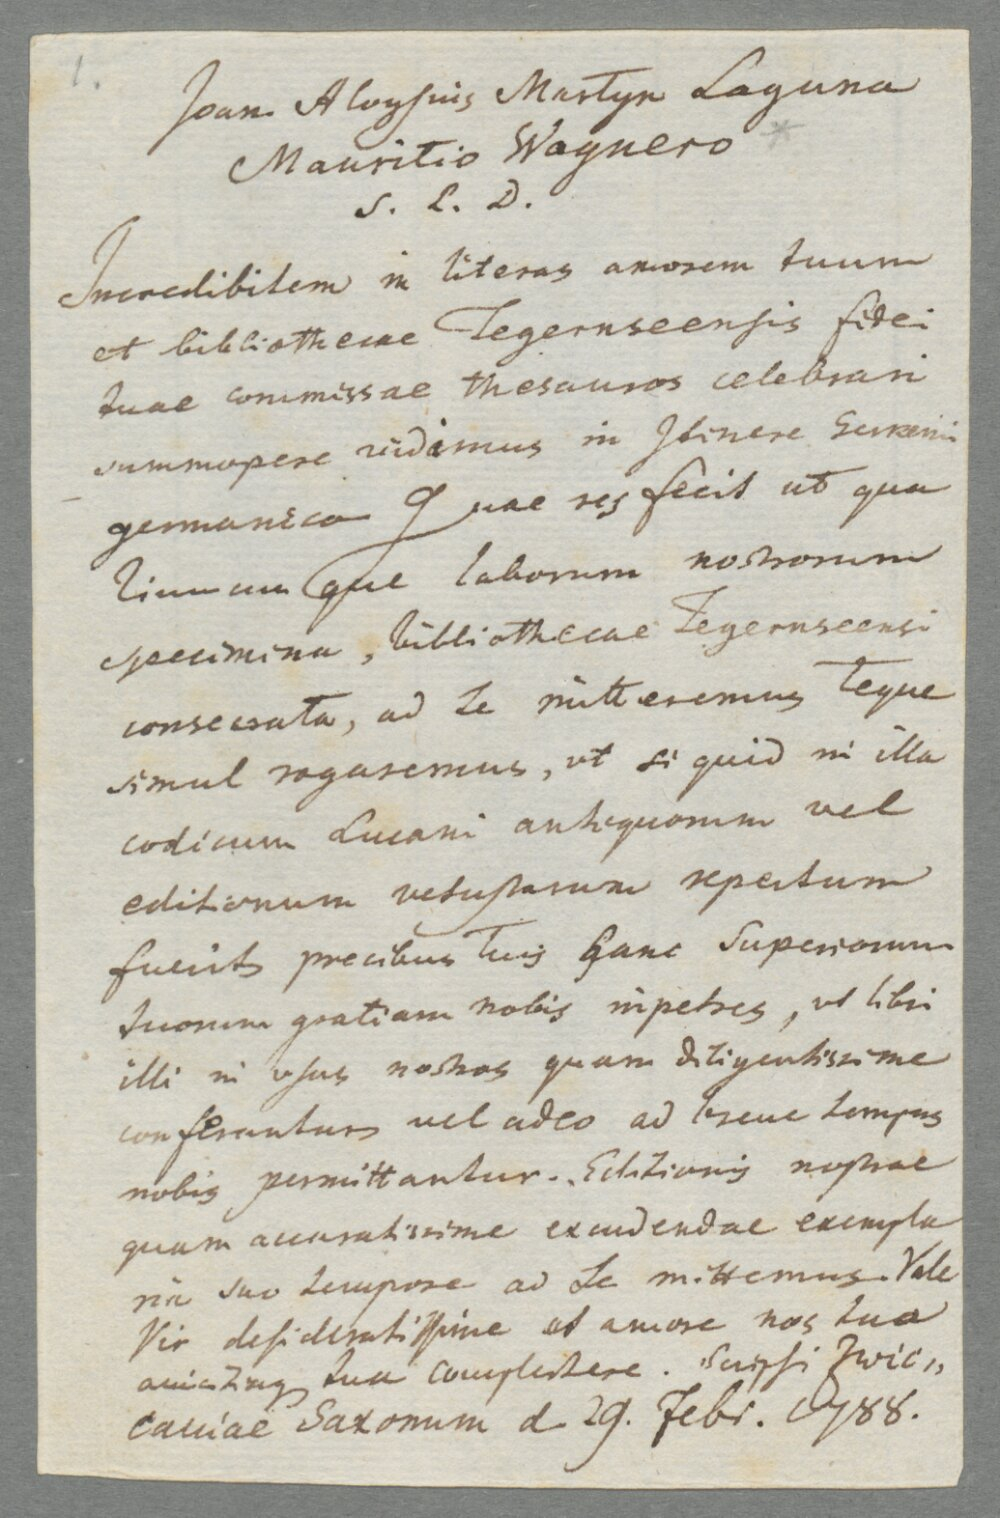 1.
Joan. Aloysius Martyn Laguna
Mauritio Wagnero *
S. L. D.
Incredibilem in literas amorem tuum
et bibliothecae Tegernseensis fidei
tuae commissae thesauros celebrari
summopere vidimus in Itinere Gerkenii
germanico Quae res fecit ut qua
liumcumque laborum nostrorum
specimina, bibliothecae Tegernseensi
consecrata, ad te mitteremus Teque
simul rogaremus, ut si quid in illa
codicum Lucani antiquorum vel
editionum vetustarum repertum
fuerit precibus Tuis hanc Superiorum
tuorum gratiam nobis inpetres, ut libri
illi in usus nostros quam diligentissime
conferantur vel adeo ad breve tempus
nobis permittantur. Editionis nostrae
quam accuratissime excudendae exempla
ria suo tempore ad te mittemus. Vale
Vir desideratissime et amore nos tuo
amicitiaq tua complectere. Scripsi Zwic„
caviae Saxonum d. 29. Febr. 1788.